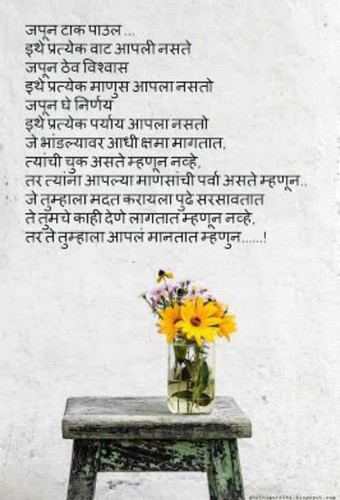 जपून टाक पाउल ...
इथे प्रत्येक वाट आपली नसते
जपून ठेव विश्वास
इथे प्रत्येक माणुस आपला नसतो
जपून घे निर्णय
इथे प्रत्येक पर्याय आपला नसतो
जे भांडल्यावर आधी क्षमा मागतात,
त्यांची चुक असते म्हणून नव्हे,
तर त्यांना आपल्या माणसांची पर्वा असते म्हणून..
जे तुम्हाला मदत करायला पुढे सरसावतात
ते तुमचे काही देणे लागतात म्हणून नव्हे,
तर ते तुम्हाला आपलं मानतात म्हणुन......!